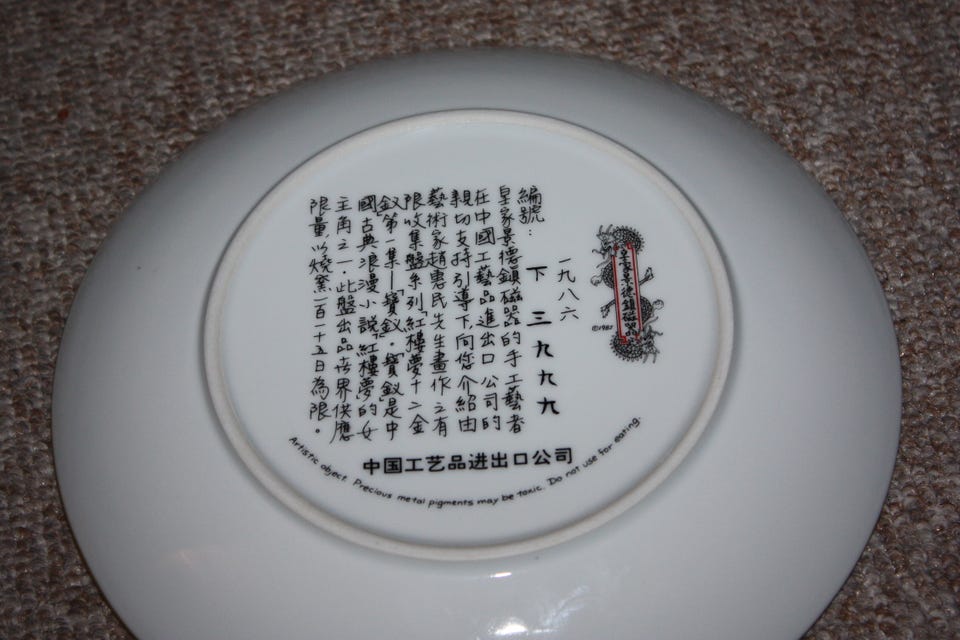 皇家景德鎮磁器
一九八六
下三九九九
編號：
皇家景德鎮磁器的手工藝者
在中國工藝品進出口公司的
親切支持引導下,向您介紹由
藝術家趙惠民先生畫作之有
限收集盤系列「紅樓夢十二金
釵」第一集—「寶釵」.「寶釵」是中
國古典浪漫小說「紅樓夢」的女
主角之一.此盤出品世界供應
限量以燒窯一百一十五日為限。
中国工艺品进出口公司
Artistic object. Precious metal pigments may be toxic. Do not use for eating.